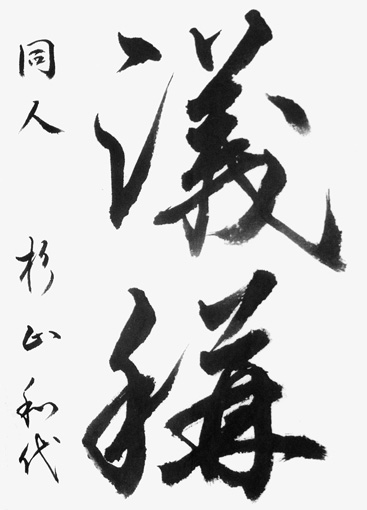 議稱
同人 杉山和代